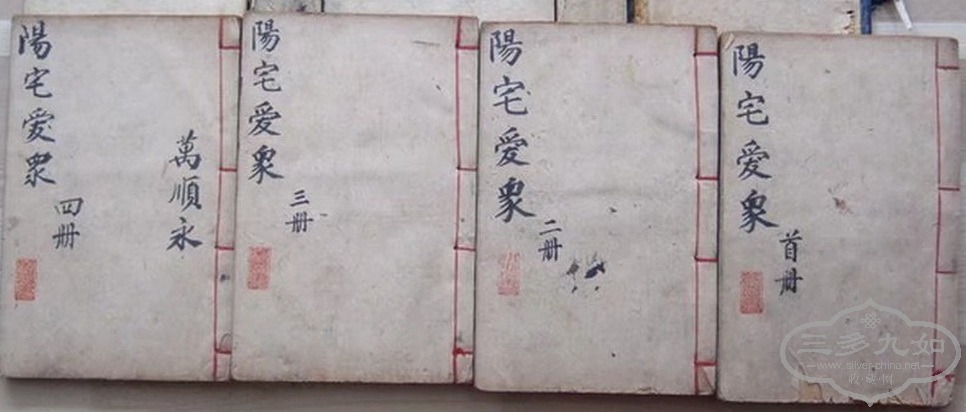 陽宅愛眾
首册
陽宅愛眾
二册
陽宅愛眾
三册
陽宅愛眾
四册
萬順永
三多九如
www.silver-china.net